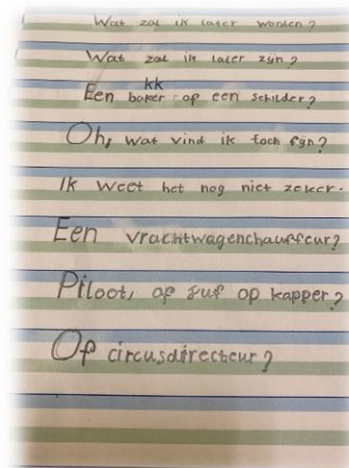 Wat zal ik later worden?
Wat zal ik later zijn?
kk
Een baker of een schilder?
Oh, wat vind ik toch fijn?
Ik weet het nog niet zeker.
Een vrachtwagenchauffeur?
Piloot, of juf op kapper?
Of circusdirecteur?